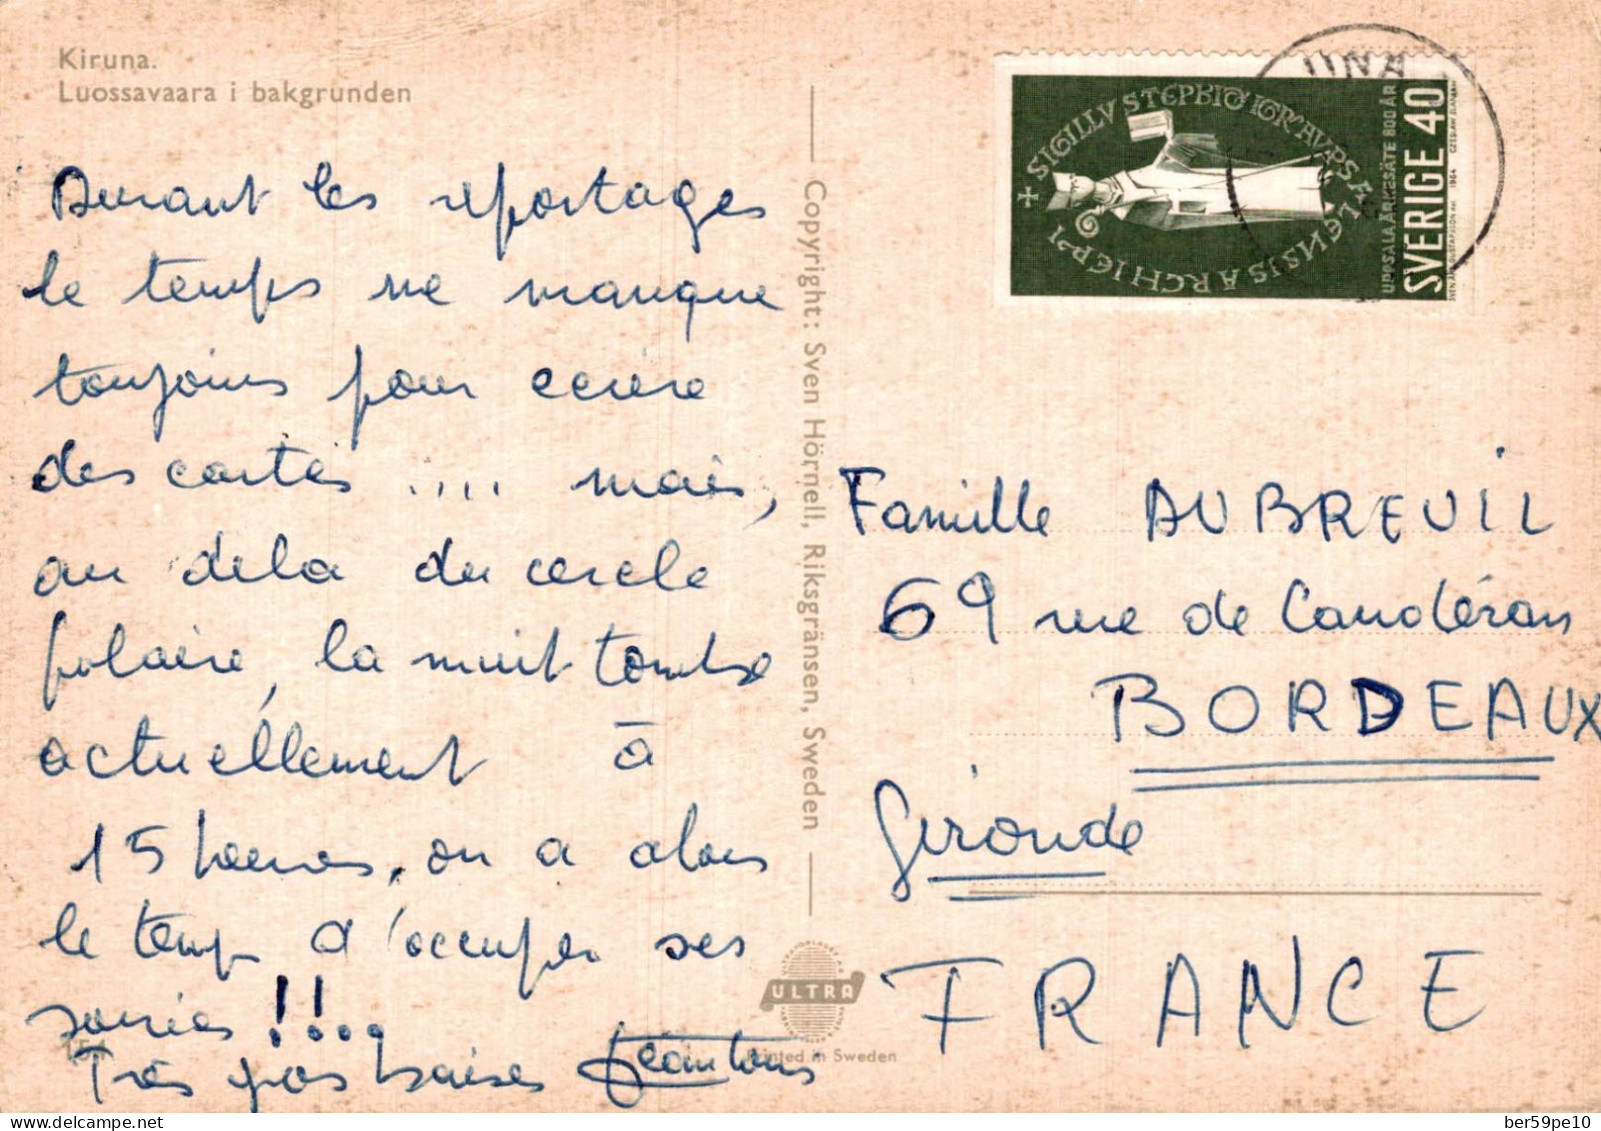 Kiruna.
Luossavaara i bakgrunden
Durant les reportages
le temps ne manque
toujours pour ecrire
des cartes .... mais,
au dela du cercle
polaire, la nuit tombe
actuellement à
15 heures, on a alors
le temps d'occuper ses
soirées !!...
Très gros baises
154
Copyright: Sven Hörnell, Riksgränsen, Sweden
ULTRA
Printed in Sweden
+ SIGILLV STEPHI IGRA VPSALENSIS ARCHIEPI
UPPSALA ÄRKESÄTE 800 ÅR
SVERIGE 40
1964
UNA
Famille AUBREUIL
69 rue de Caudéran
BORDEAUX
Gironde
FRANCE
delcampe.net
ber59pe10